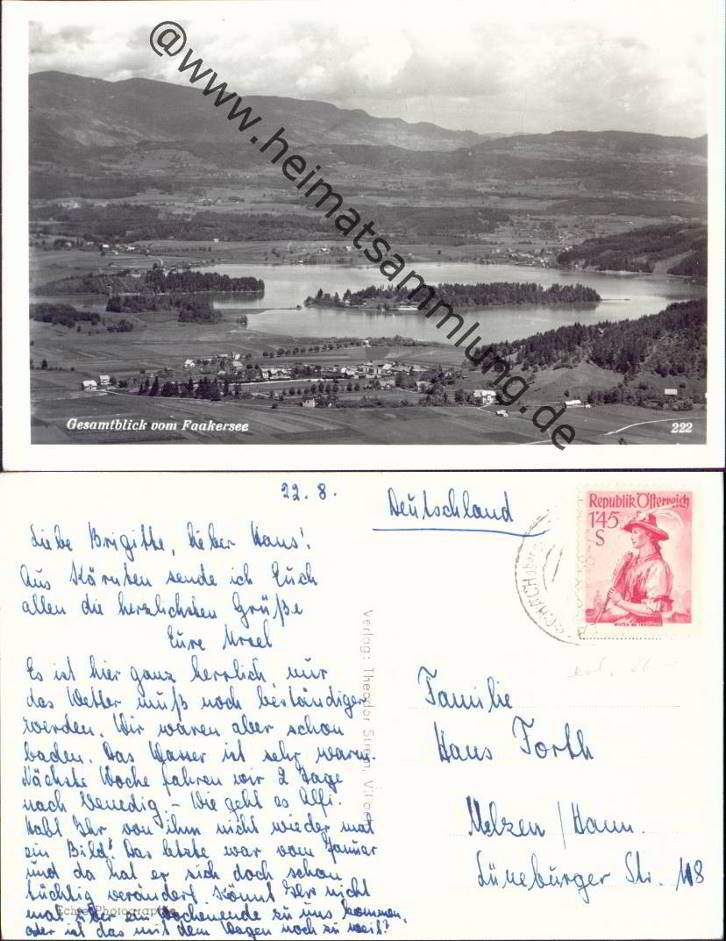 @www.heimatsammlung.de
Gesamtblick vom Faakersee
222
22. 8.
Liebe Brigitte, lieber Hans!
Aus Kärnten sende ich Euch
allen die herzlichsten Grüße
Eure Ursel
Es ist hier ganz herrlich nur
das Wetter muß noch beständiger
werden. Wir waren aber schon
baden. Das Wasser ist sehr warm.
Nächste Woche fahren wir 2 Tage
nach Venedig. – Wie geht es Alfi.
Habt Ihr von ihm nicht wieder mal
ein Bild? Das letzte war vom Januar
und da hat er sich doch schon
tüchtig verändert. Könnt Ihr nicht
mal über ein Wochenende zu uns kommen,
oder ist das mit dem Wagen noch zu weit?
Echte Photographie
Verlag: Theodor Simon, Villach
Deutschland
Republik Österreich
1'45
S
Familie
Hans Forth
Uelzen / Hann.
Lüneburger Str. 118